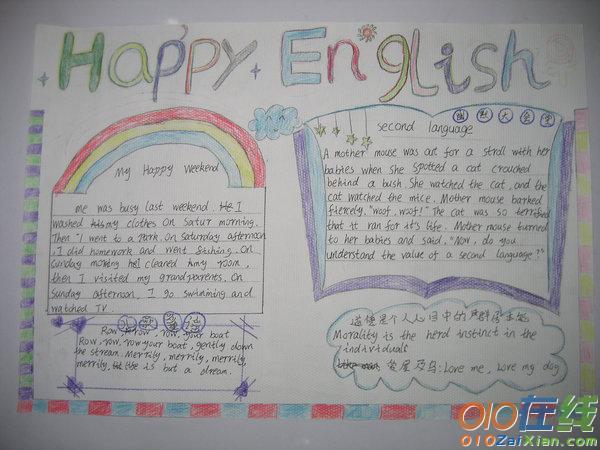 Happy English
My Happy Weekend
me was busy last weekend. He I
washed his my clothes on Satur morning.
Then "I went to a park. On Saturday afternoon
, I did homework and went fishing. On
sunday morning he I cleaned my room,
then I visited my grandparents. On
Sunday afternoon, I go swimming and
watched TV.
Row, row, row your boat
Row, row, row your boat, gently down
the stream. Merrily, merrily, merrily,
merrily, life is but a dream.
幽默大会堂
second language
A mother mouse was out for a stroll with her
babies when she spotted a cat crouched
behind a bush. She watched the cat, and the
cat watched the mice. Mother mouse barked
fiercely, "woof, woof!" The cat was so terrified
that it ran for it's life. Mother mouse turned
to her babies and said, "Now, do you
understand the value of a second language?"
道德是个人心目中的
Morality is the herd instinct in the
individual!
爱屋及乌: Love me, Love my dog
010在线
010ZaiXian.com